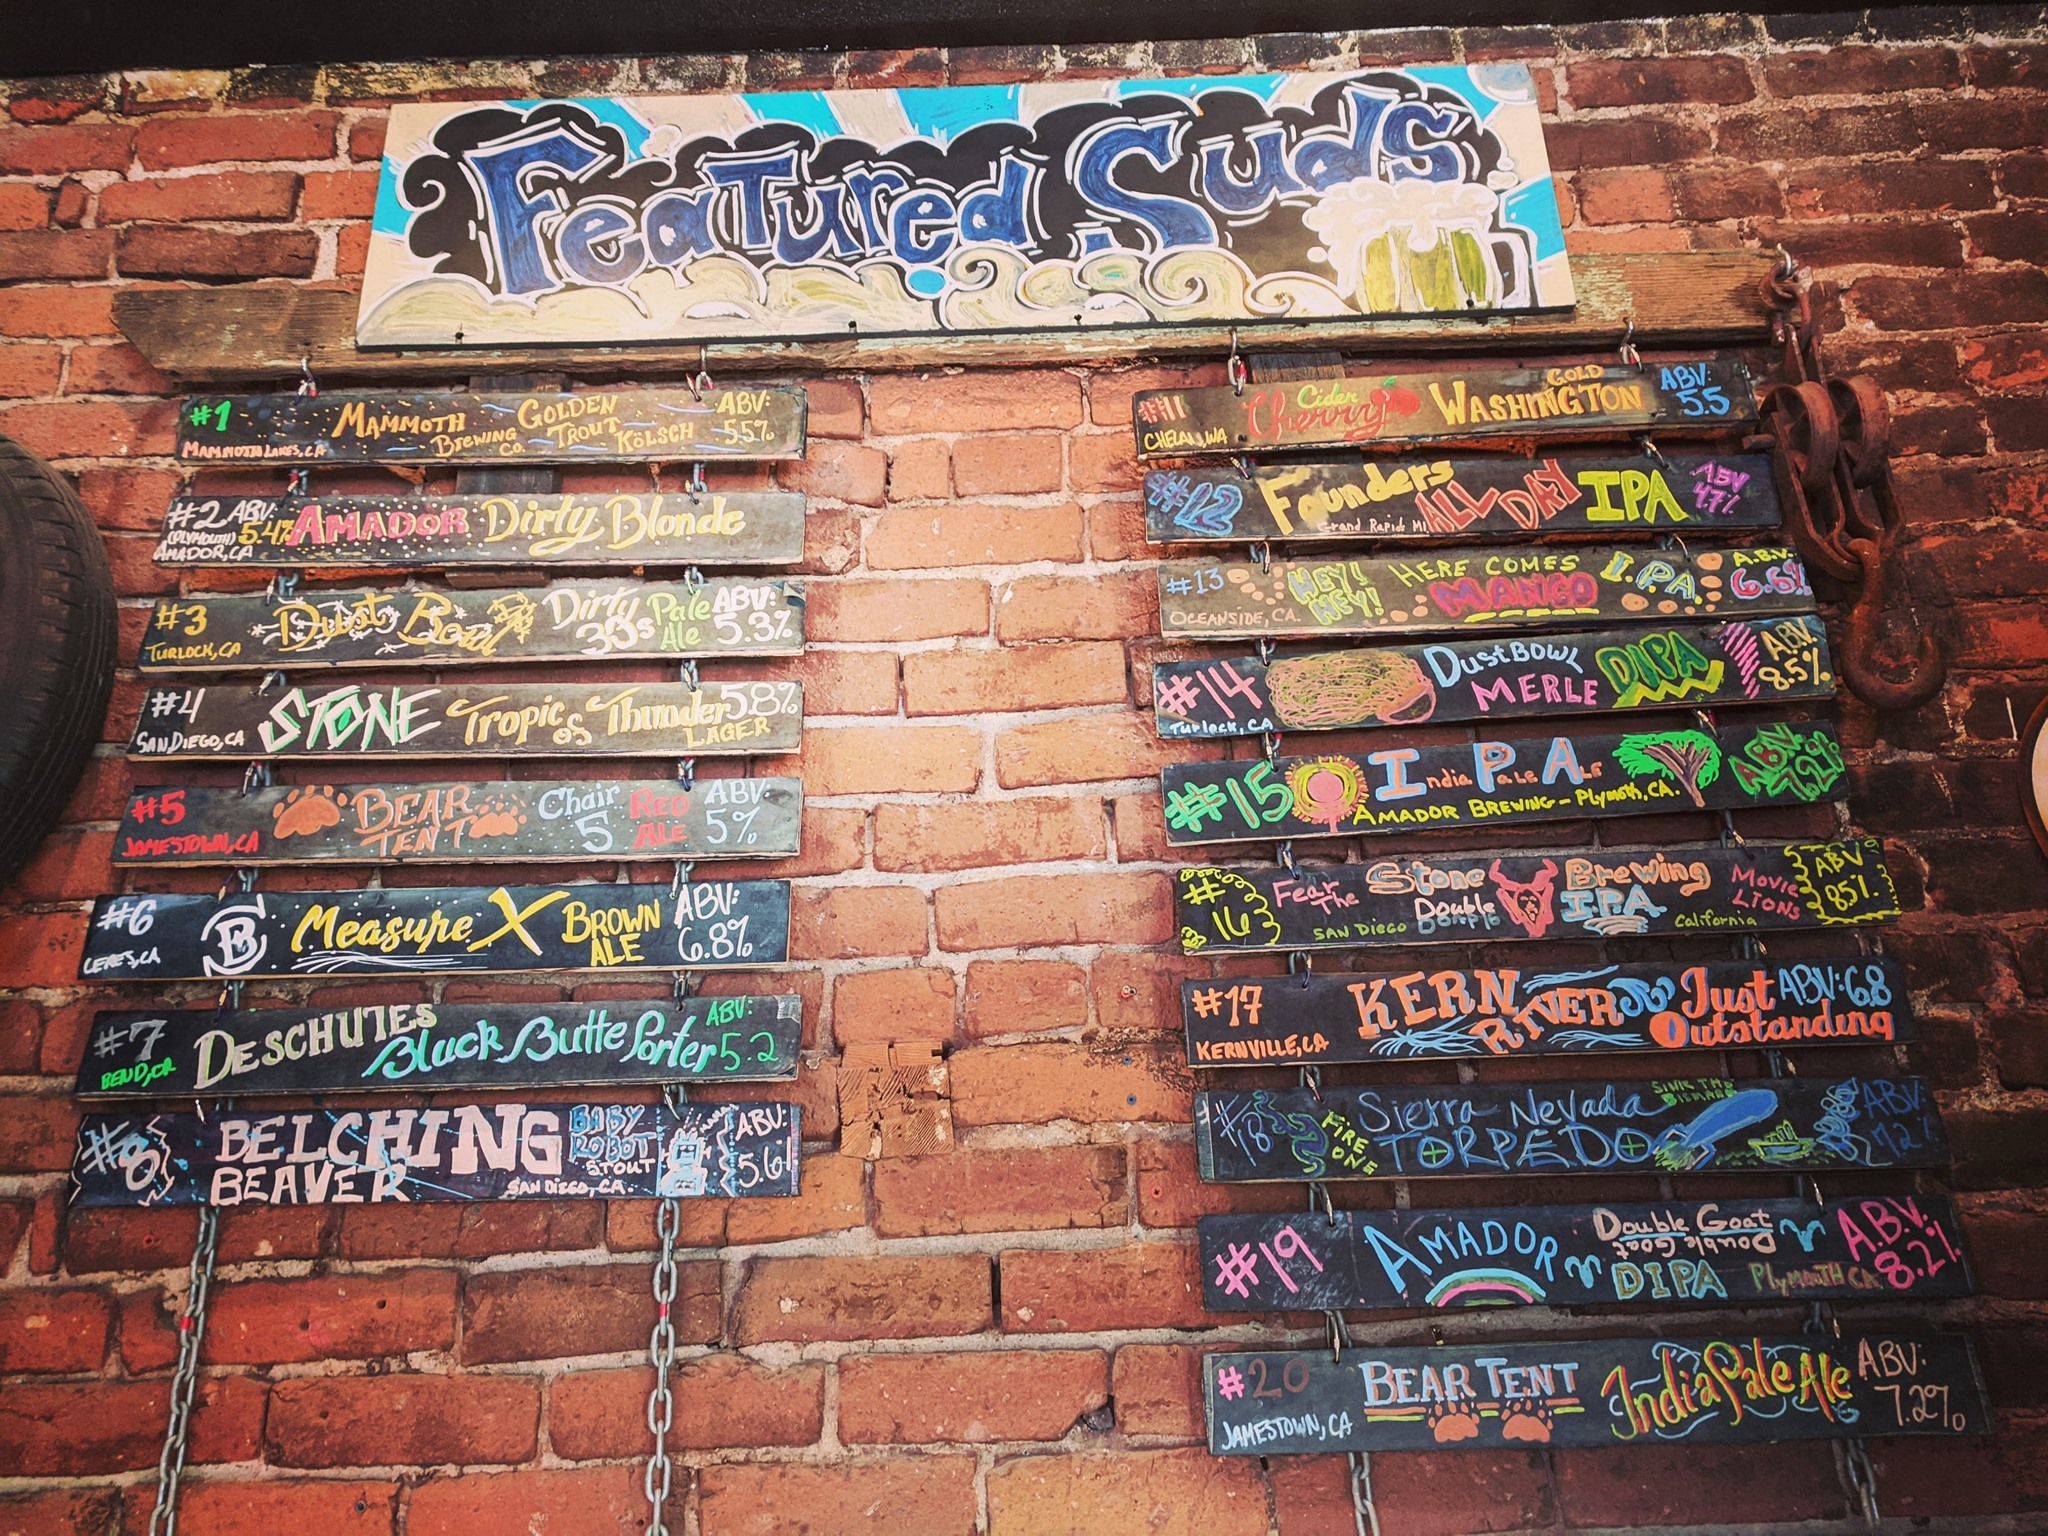 Featured Suds
#1 Mammoth Brewing Co. Golden Trout Kölsch ABV: 5.5%
Mammoth Lakes, CA
#2 ABV: 5.4% Amador Dirty Blonde
(Plymouth)
Amador, CA
#3 Dust Bowl Dirty 30s Pale Ale ABV: 5.3%
Turlock, CA
#4 Stone Tropic of Thunder Lager 5.8%
San Diego, CA
#5 Bear Tent Chair 5 Red Ale ABV: 5%
Jamestown, CA
#6 B Measure X Brown Ale ABV: 6.8%
Ceres, CA
#7 Deschutes Black Butte Porter ABV: 5.2
Bend,
#8 Belching Beaver Baby Robot Stout ABV: 5.6
San Diego, CA.
#11 Cider Cherry Gold Washington ABV: 5.5
Chelan, WA
#12 Founders All Day IPA ABV 4.7%
Grand Rapids MI
#13 Hey! Hey! Here Comes Mango I.P.A. A.B.V. 6.6%
Oceanside, CA.
#14 Dust Bowl Merle DIPA ABV. 8.5%
Turlock, CA
#15 India Pale Ale ABV: 7.2%
Amador Brewing - Plymoth, CA.
#16 Fear The Stone Brewing Movie Lions ABV 8.5%
Double Double I.P.A.
San Diego California
#17 Kern River Just Outstanding ABV: 6.8
Kernville, CA
#18 Fire One Sierra Nevada Torpedo Sink The Bismarck ABV: 7.2%
#19 Amador Double Goat Double Goat DIPA Plymouth CA. A.B.V. 8.2%
#20 Bear Tent India Pale Ale ABV: 7.2%
Jamestown, CA